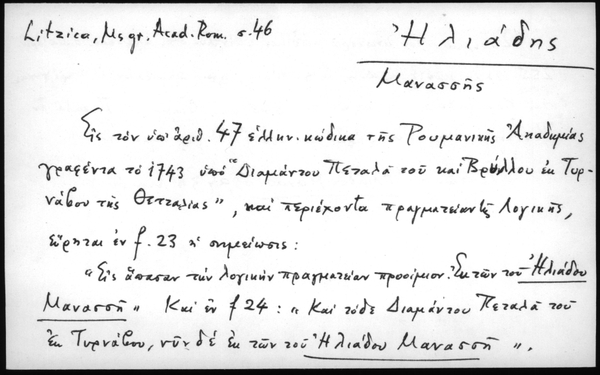 Litzica, Ms gr. Acad. Rom. σ. 46
Ἡλιάδης
Μανασσῆς
Εἰς τὸν ὑπ' ἀριθ. 47 ἑλλην. κώδικα τῆς Ρουμανικῆς Ἀκαδημίας
γραφέντα τὸ 1743 ὑπὸ "Διαμάντου Πεταλᾶ τοῦ καὶ Βρύλλου ἐκ Τυρ-
νάβου τῆς Θετταλίας", καὶ περιέχοντα πραγματείαν τῆς Λογικῆς,
εὕρηται ἐν f. 23 ἡ σημείωσις:
"Εἰς ἅπασαν τὴν λογικὴν πραγματείαν προοίμιον. Ἐκ τῶν τοῦ Ἡλιάδου
Μανασσῆ" Καὶ ἐν f 24: "Καὶ τόδε Διαμάντου Πεταλᾶ τοῦ
ἐκ Τυρνάβου, νῦν δὲ ἐκ τῶν τοῦ Ἡλιάδου Μανασσῆ".